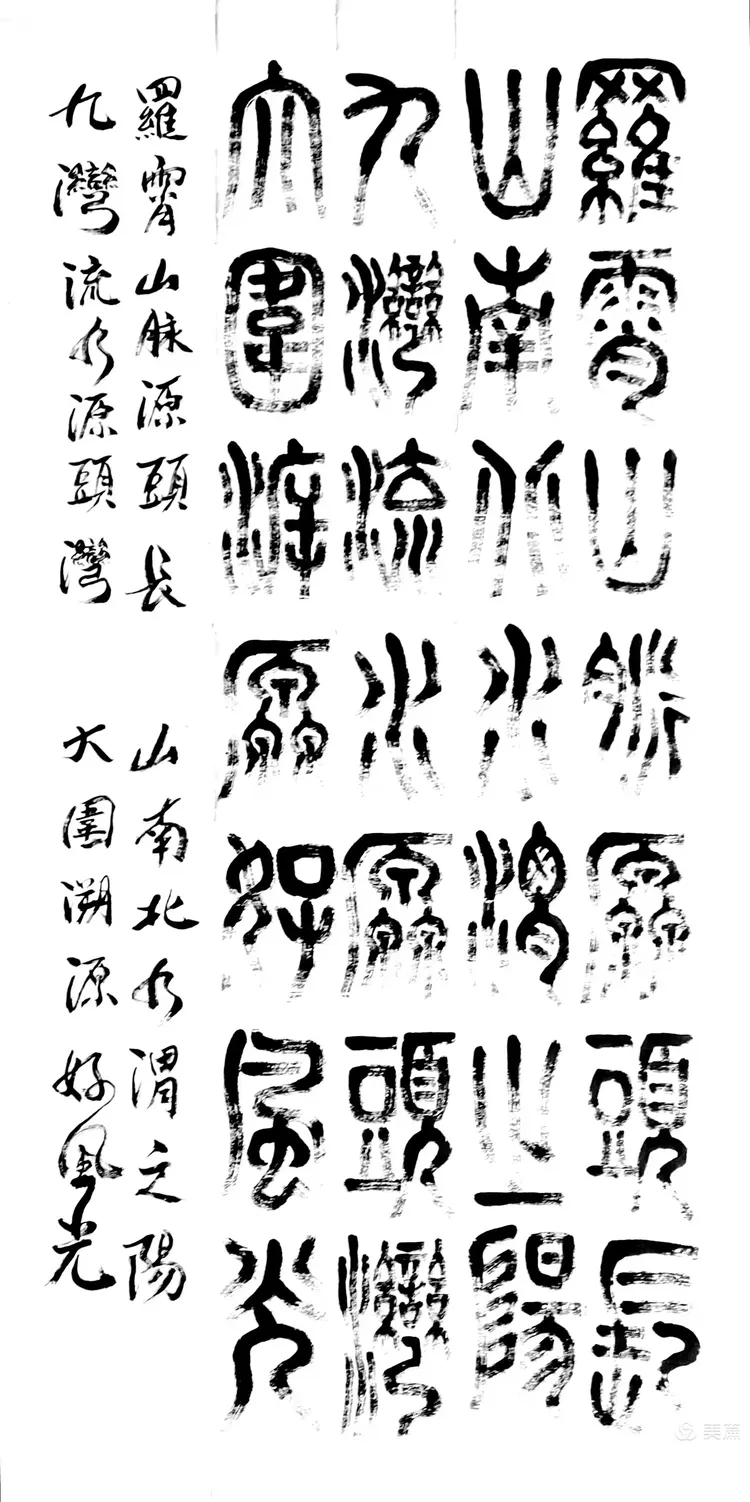 羅霄山脈源頭長
山南北水渭之陽
九灣流水源頭灣
大圍溯源好風光
羅霄山脉源頭長
山南北水渭之陽
九灣流水源頭灣
大圍溯源好風光
美篇